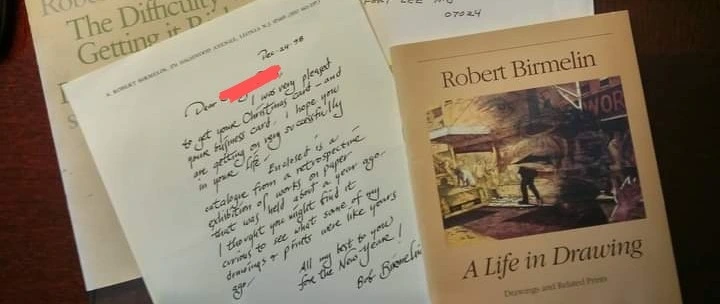 Robe
The Difficulty
Getting it Ri
FORT LEE N.J.
07024
ROBERT BIRMELIN, 176 HIGHWOOD AVENUE, LEONIA N.J. 07605
Dec-24-98
Dear
I was very pleased
to get your Christmas card - and
your business card. I hope you
are getting on very successfully
in your life. Enclosed is a
catalogue from a retrospective
exhibition of works on paper
that was held about a year ago.
I thought you might find it
curious to see what some of my
drawings & prints were like years
ago.
All my best to you
for the New Year!
Bob Birmelin
Robert Birmelin
WOR
A Life in Drawing
Drawings and Related Prints